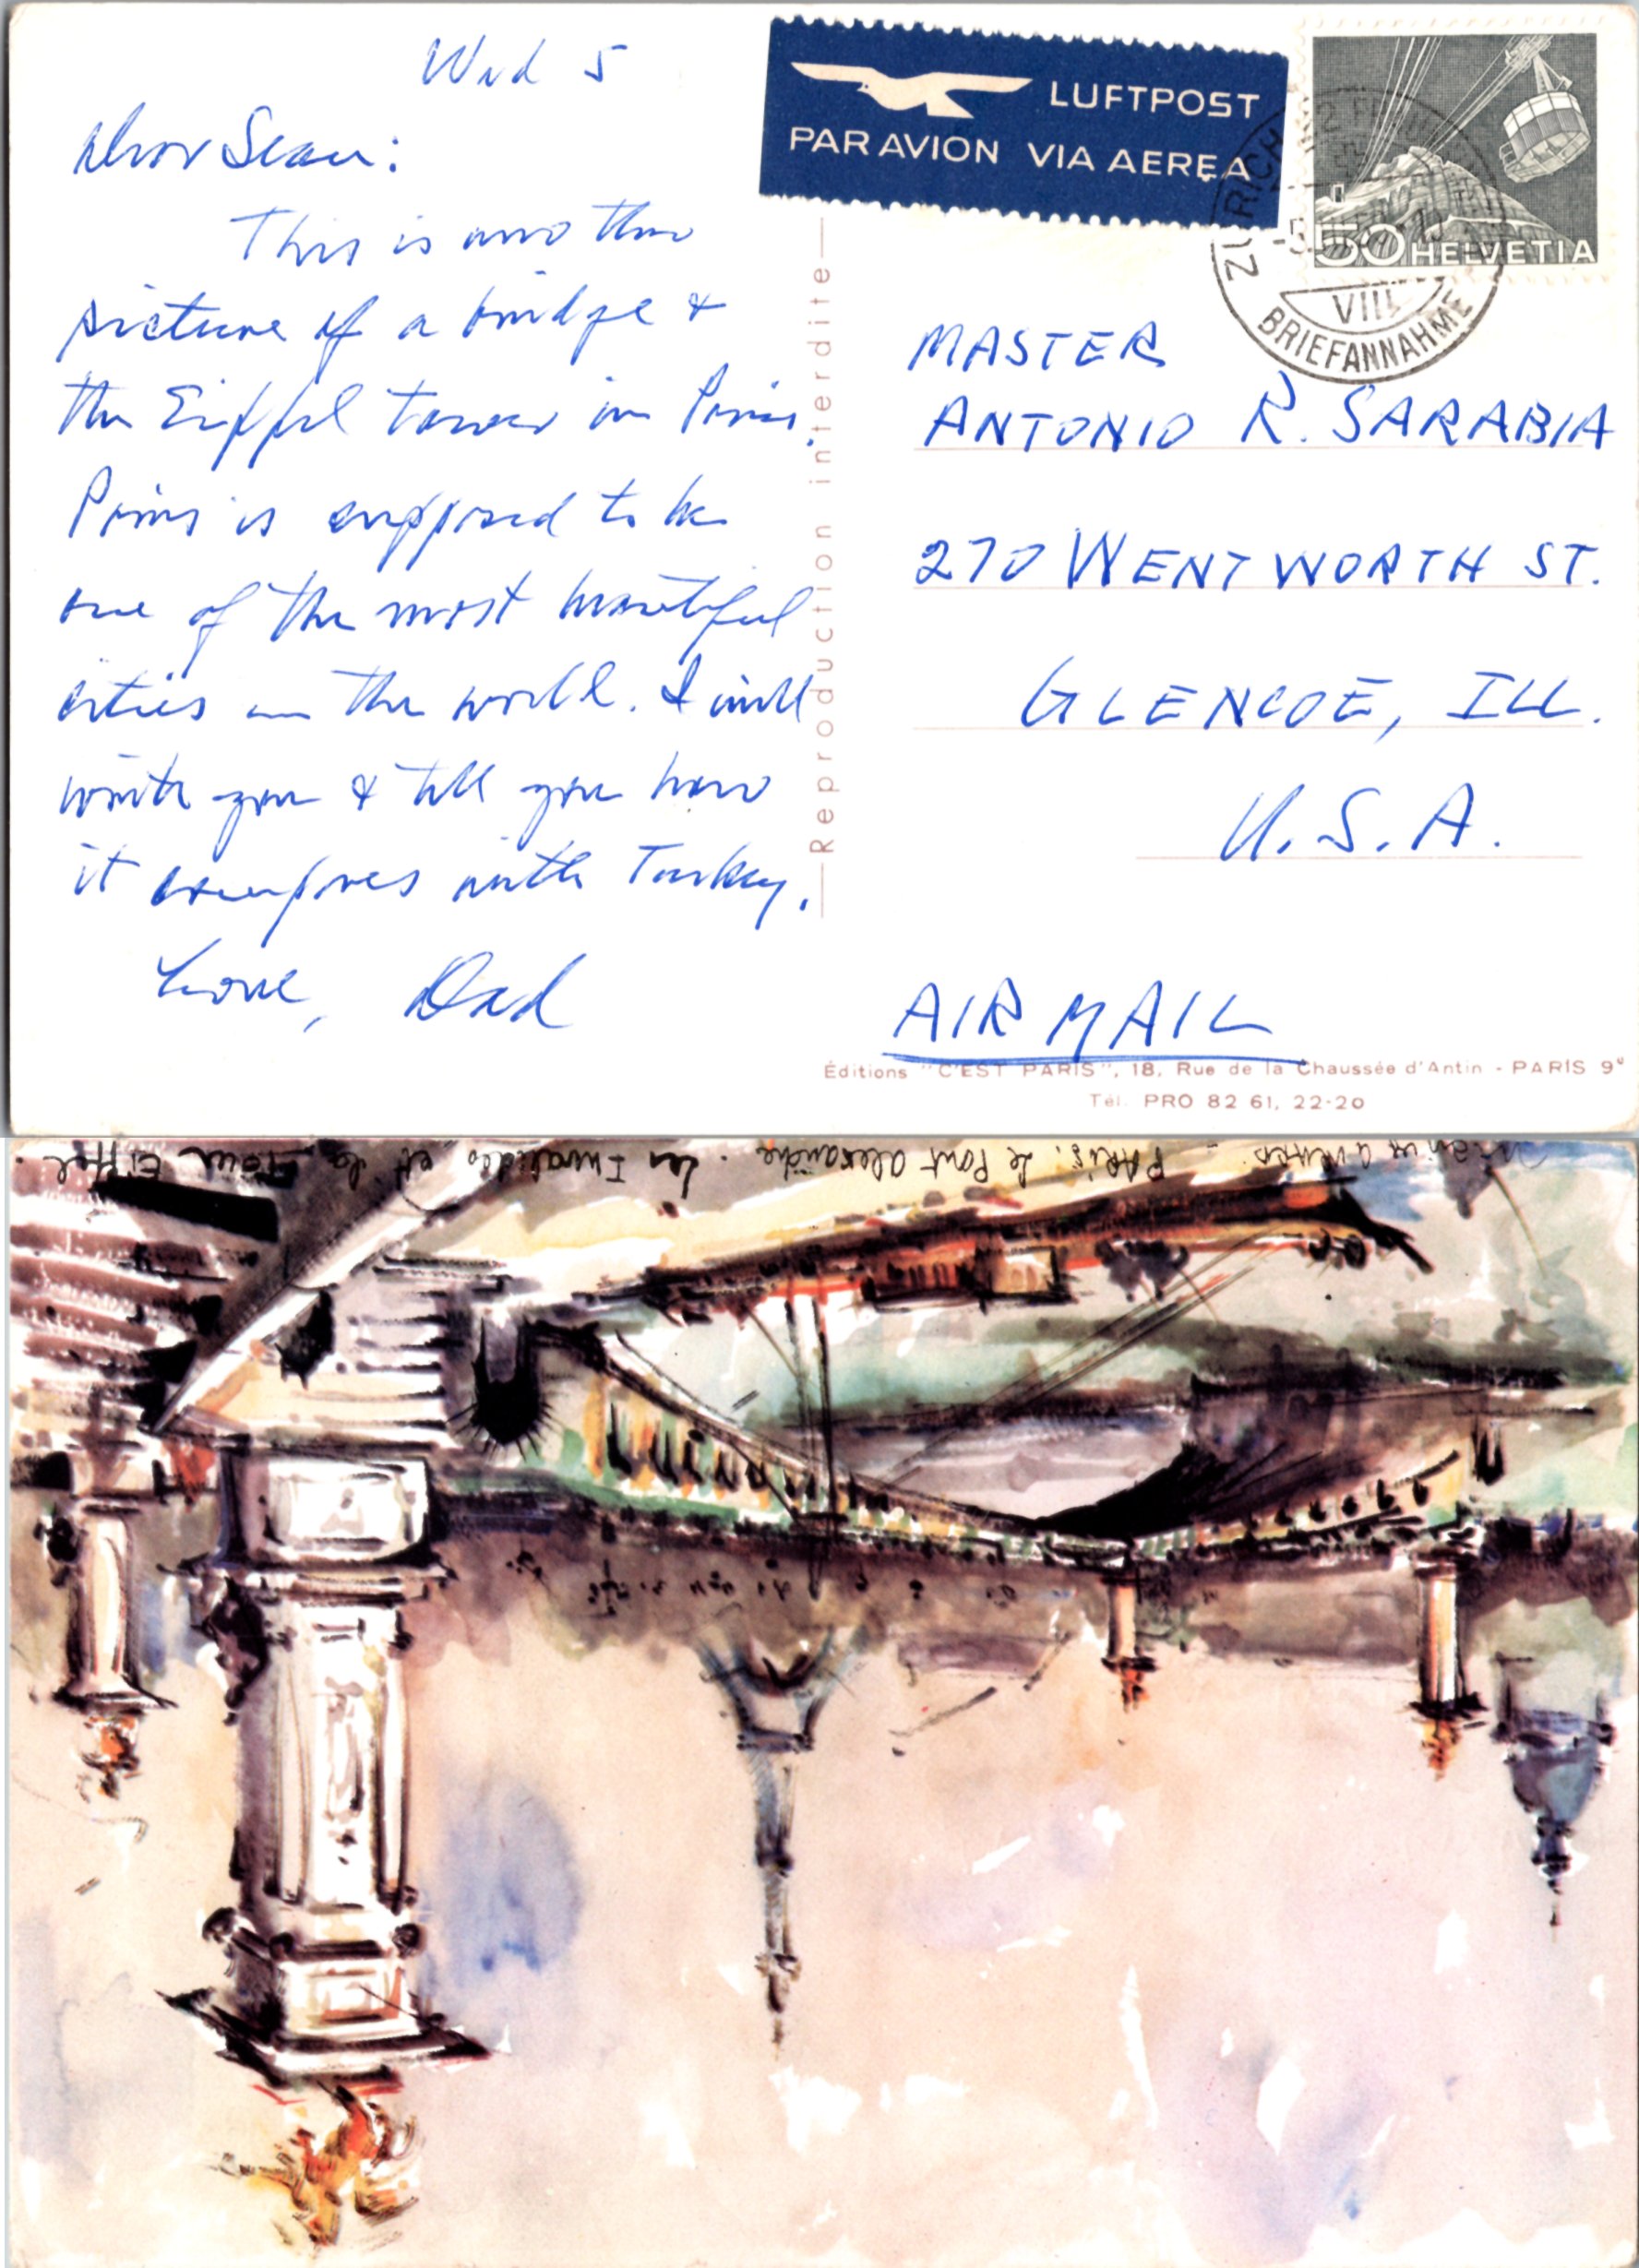 Wed 5
Dear Sean:
This is another
picture of a bridge &
the Eiffel tower in Paris.
Paris is supposed to be
one of the most beautiful
cities in the world. I will
write you & tell you how
it compares with Turkey.
Love, Dad
LUFTPOST
PAR AVION VIA AEREA
50 HELVETIA
VIII
BRIEFANNAHME
Reproduction interdite
MASTER
ANTONIO R. SARABIA
270 WENTWORTH ST.
GLENCOE, ILL.
U.S.A.
AIR MAIL
Éditions "C'EST PARIS", 18, Rue de la Chaussée d'Antin - PARIS 9e
Tél. PRO 82 61, 22-20
PARIS. Le Pont Alexandre. Les Invalides et la Tour Eiffel.